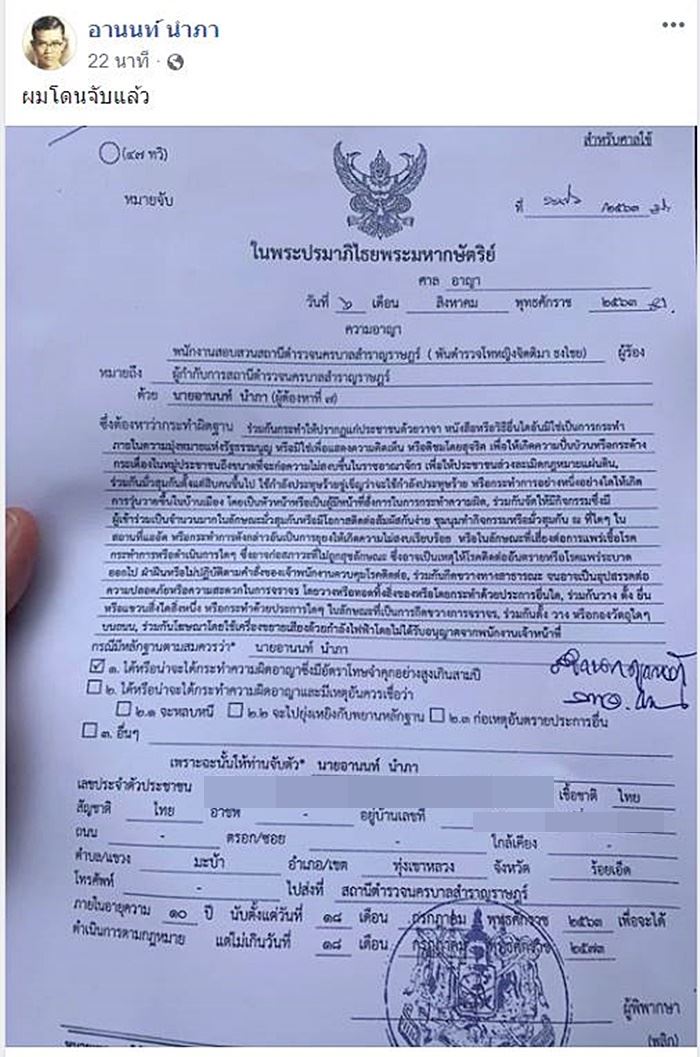 อานนท์ นำภา
22 นาที
ผมโดนจับแล้ว
สำหรับศาลใช้
(๔๗ ทวิ)
หมายจับ
ที่ /๒๕๖๓
ในพระปรมาภิไธยพระมหากษัตริย์
ศาล อาญา
วันที่ ๖ เดือน สิงหาคม พุทธศักราช ๒๕๖๓
ความอาญา
พนักงานสอบสวนสถานีตำรวจนครบาลสำราญราษฎร์ ( พันตำรวจโทหญิงจิตติมา ธงไชย) ผู้ร้อง
หมายถึง ผู้กำกับการสถานีตำรวจนครบาลสำราญราษฎร์
ด้วย นายอานนท์ นำภา (ผู้ต้องหาที่ ๗)
ซึ่งต้องหาว่ากระทำผิดฐาน ร่วมกันกระทำให้ปรากฏแก่ประชาชนด้วยวาจา หนังสือหรือวิธีอื่นใดอันมิใช่เป็นการกระทำ
ภายในความมุ่งหมายแห่งรัฐธรรมนูญ หรือมิใช่เพื่อแสดงความคิดเห็น หรือติชมโดยสุจริต เพื่อให้เกิดความปั่นป่วนหรือกระด้าง
กระเดื่องในหมู่ประชาชนถึงขนาดที่จะก่อความไม่สงบขึ้นในราชอาณาจักร เพื่อให้ประชาชนล่วงละเมิดกฎหมายแผ่นดิน,
ร่วมกันมั่วสุมกันตั้งแต่สิบคนขึ้นไป ใช้กำลังประทุษร้ายขู่เข็ญว่าจะใช้กำลังประทุษร้าย หรือกระทำการอย่างหนึ่งอย่างใดให้เกิด
การวุ่นวายขึ้นในบ้านเมือง โดยเป็นหัวหน้าหรือเป็นผู้มีหน้าที่สั่งการในการกระทำความผิด, ร่วมกันจัดให้มีกิจกรรมซึ่งมี
ผู้เข้าร่วมเป็นจำนวนมากในลักษณะมั่วสุมกันหรือมีโอกาสติดต่อสัมผัสกันง่าย ชุมนุมทำกิจกรรมหรือมั่วสุมกัน ณ ที่ใดๆ ใน
สถานที่แออัด หรือกระทำการดังกล่าวอันเป็นการยุยงให้เกิดความไม่สงบเรียบร้อย หรือในลักษณะที่เสี่ยงต่อการแพร่เชื้อโรค
กระทำการหรือดำเนินการใดๆ ซึ่งอาจก่อสภาวะที่ไม่ถูกสุขลักษณะ ซึ่งอาจเป็นเหตุให้โรคติดต่ออันตรายหรือโรคแพร่ระบาด
ออกไป ฝ่าฝืนหรือไม่ปฏิบัติตามคำสั่งของเจ้าพนักงานควบคุมโรคติดต่อ, ร่วมกันกีดขวางทางสาธารณะ จนอาจเป็นอุปสรรคต่อ
ความปลอดภัยหรือความสะดวกในการจราจร โดยวางหรือทอดทิ้งสิ่งของหรือโดยกระทำด้วยประการอื่นใด, ร่วมกันวาง ตั้ง ยื่น
หรือแขวนสิ่งใดสิ่งหนึ่ง หรือกระทำด้วยประการใดๆ ในลักษณะที่เป็นการกีดขวางการจราจร, ร่วมกันตั้ง วาง หรือกองวัตถุใดๆ
บนถนน, ร่วมกันโฆษณาโดยใช้เครื่องขยายเสียงด้วยกำลังไฟฟ้าโดยไม่ได้รับอนุญาตจากพนักงานเจ้าหน้าที่
กรณีมีหลักฐานตามสมควรว่า* นายอานนท์ นำภา
๑. ได้หรือน่าจะได้กระทำความผิดอาญาซึ่งมีอัตราโทษจำคุกอย่างสูงเกินสามปี
๒. ได้หรือน่าจะได้กระทำความผิดอาญาและมีเหตุอันควรเชื่อว่า
๒.๑ จะหลบหนี ๒.๒ จะไปยุ่งเหยิงกับพยานหลักฐาน ๒.๓ ก่อเหตุอันตรายประการอื่น
๓. อื่นๆ
เพราะฉะนั้นให้ท่านจับตัว* นายอานนท์ นำภา
เลขประจำตัวประชาชน เชื้อชาติ ไทย
สัญชาติ ไทย อาชีพ - อยู่บ้านเลขที่
ถนน - ตรอก/ซอย - ใกล้เคียง -
ตำบล/แขวง มะบ้า อำเภอ/เขต ทุ่งเขาหลวง จังหวัด ร้อยเอ็ด
โทรศัพท์ - ไปส่งที่ สถานีตำรวจนครบาลสำราญราษฎร์
ภายในอายุความ ๑๐ ปี นับตั้งแต่วันที่ ๑๘ เดือน กรกฎาคม พุทธศักราช ๒๕๖๓ เพื่อจะได้
ดำเนินการตามกฎหมาย แต่ไม่เกินวันที่ ๑๘ เดือน กรกฎาคม พุทธศักราช ๒๕๗๓
ผู้พิพากษา
(พลิก)